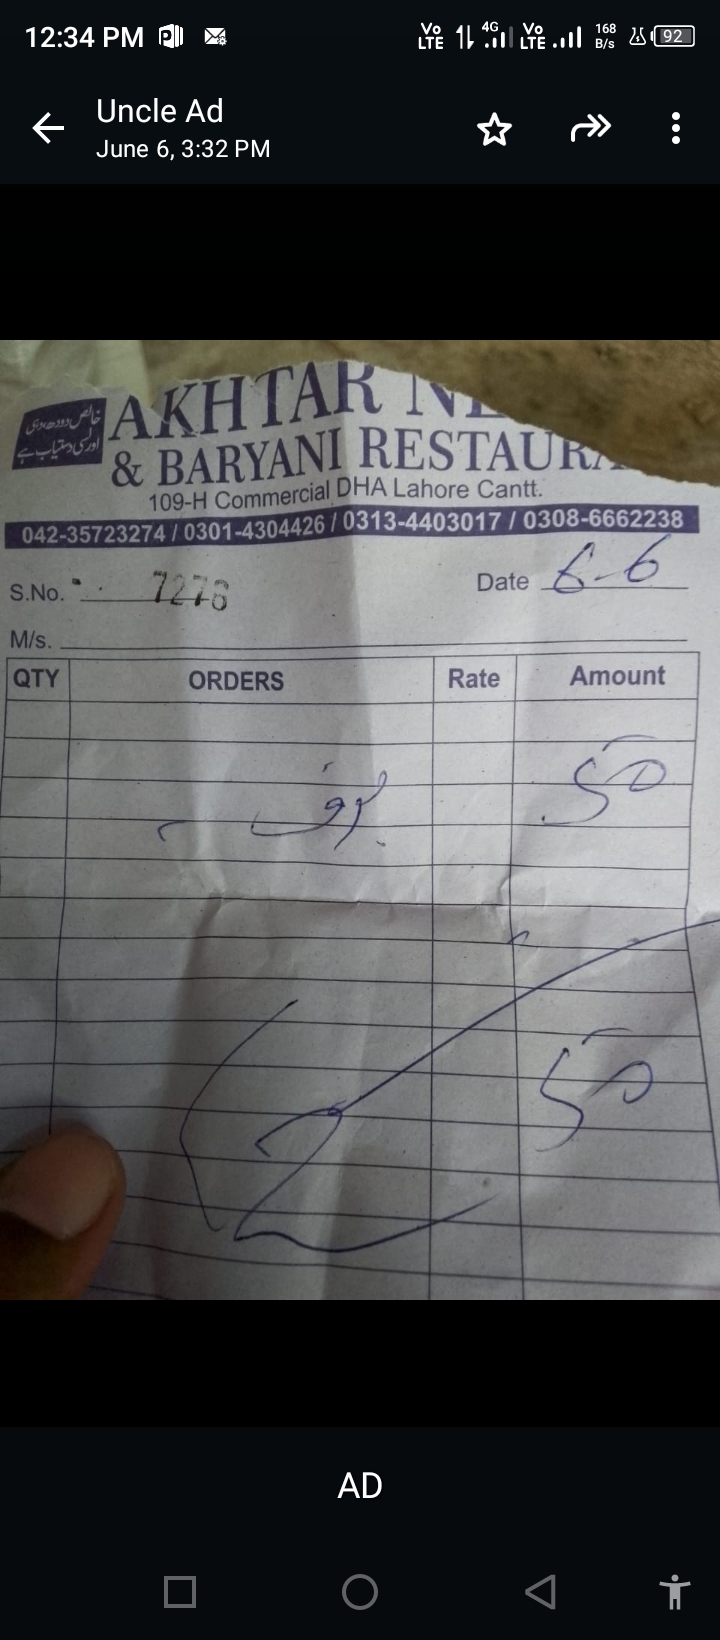 12:34 PM
Vo LTE 4G Vo LTE 168 B/s 92
Uncle Ad
June 6, 3:32 PM
خالص دودھ دہی
اور لسی دستیاب ہے
AKHTAR
& BARYANI RESTAURA
109-H Commercial DHA Lahore Cantt.
042-35723274 / 0301-4304426 / 0313-4403017 / 0308-6662238
S.No. 7278 Date 6-6
M/s.
QTY ORDERS Rate Amount
برف 50
50
AD